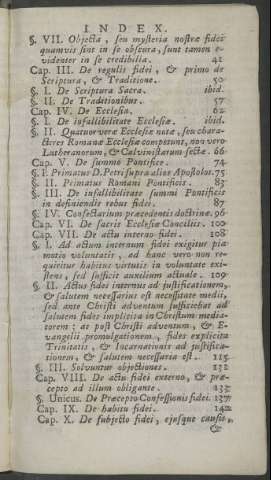 INDEX.
§. VII. Objecta, seu mysteria nostræ fidei
quamvis sint in se obscura, sunt tamen e-
videnter in se credibilia. 42
Cap. III. De regulis fidei, & primo de
Scriptura, & Traditione. 50
§. I. De Scriptura Sacra. ibid.
§. II. De Traditionibus. 57
Cap. IV. De Ecclesia. 62
§. I. De infallibilitate Ecclesiæ. ibid.
§. II. Quatuor veræ Ecclesiæ notæ, seu chara-
cteres Romanæ Ecclesiæ competunt, non vero
Lutheranorum, & Calvinistarum sectæ. 66
Cap. V. De summo Pontifice. 74
§. I. Primatus D. Petri supra alios Apostolos. 75
§. II. Primatus Romani Pontificis. 83
§. III. De infallibilitate summi Pontificis
in definiendis rebus fidei. 87
§. IV. Consectarium præcedentis doctrinæ. 96
Cap. VI. De sacris Ecclesiæ Conciliis. 100
Cap. VII. De actu interno fidei. 108
§. I. Ad actum internum fidei exigitur pia
motio voluntatis, ad hanc vero non re-
quiritur habitus virtutis in voluntate exi-
stens, sed sufficit auxilium actuale. 109
§. II. Actus fidei internus ad justificationem,
& salutem necessarius est necessitate medii,
sed ante Christi adventum sufficiebat ad
salutem fides implicita in Christum media-
torem; at post Christi adventum, & E-
vangelii promulgationem, fides explicita
Trinitatis, & Incarnationis ad justifica-
tionem, & salutem necessaria est. 115
§. III. Solvuntur objectiones. 132
Cap. VIII. De actu fidei externo, & præ-
cepto ad illum obligante. 137
§. Unicus. De Præcepto Confessionis fidei. 137
Cap. IX. De habitu fidei.
Cap. X. De subjecto fidei, ejusque causis,
&